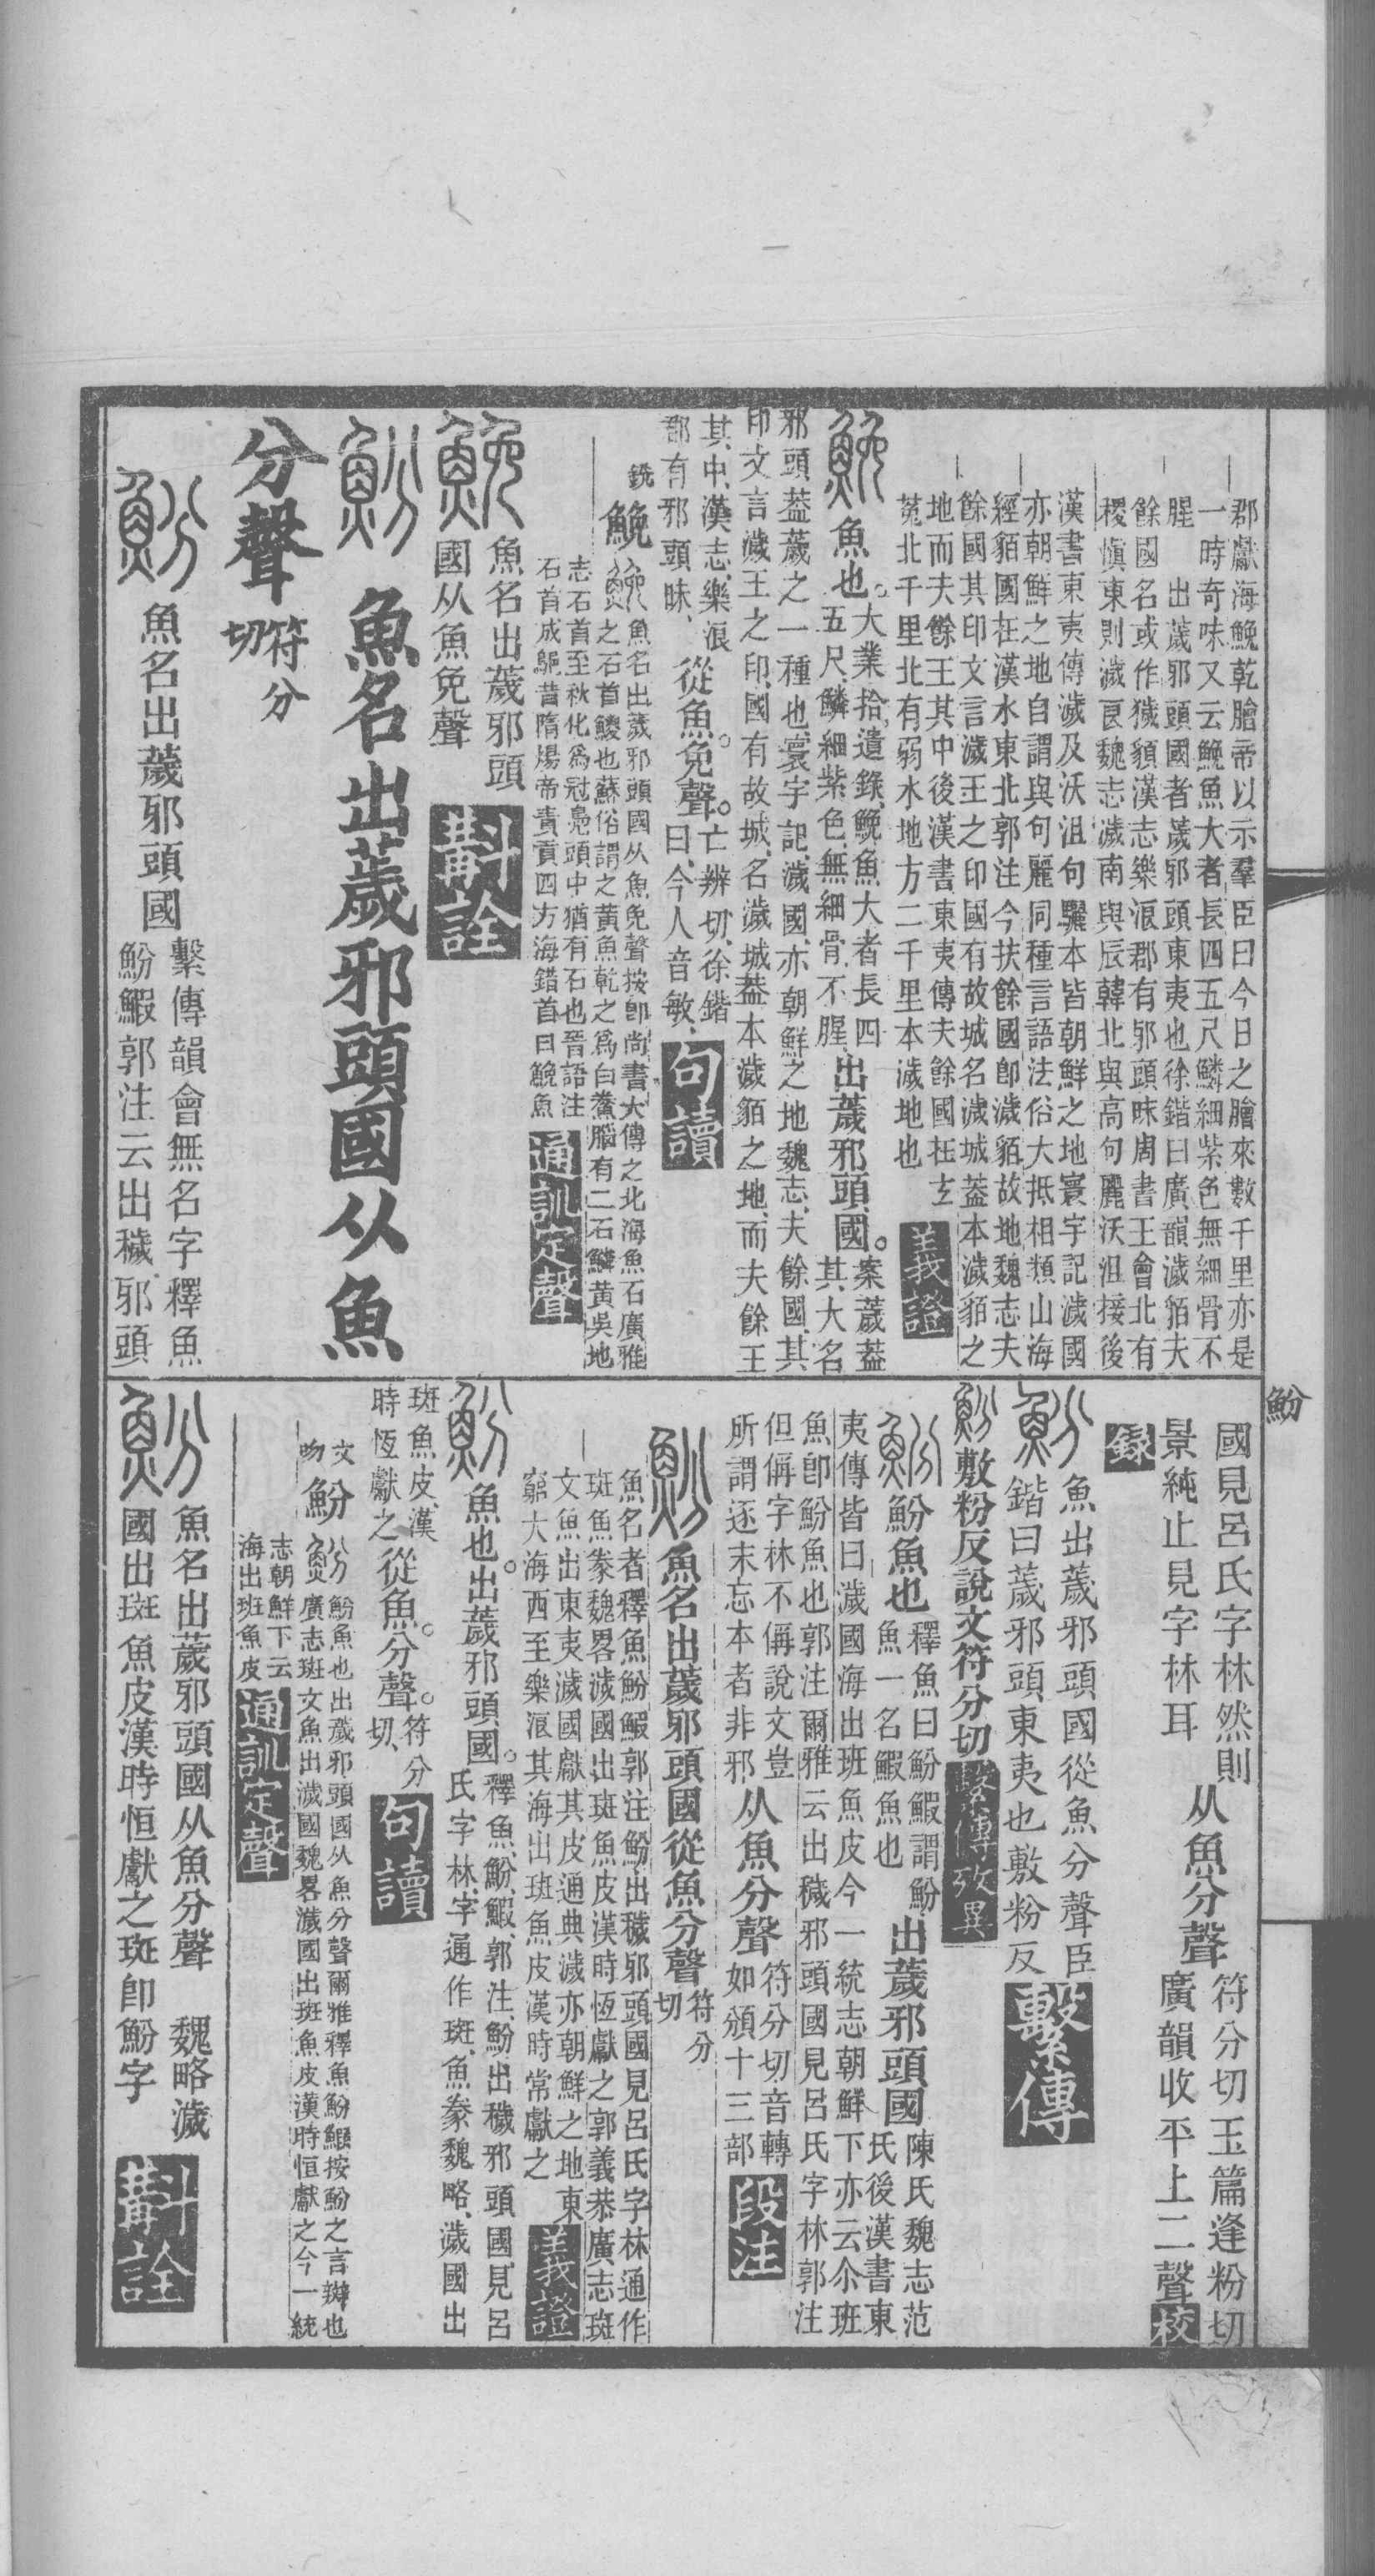 郡獻海鮸乾膾帝以示羣臣曰今日之膾來數千里亦是
一時奇味又云鮸魚大者長四五尺鱗細紫色無細骨不
腥　出薉邪頭國者薉邪頭東夷也徐鍇曰廣韻濊貊夫
餘國名或作獩貊漢志樂浪郡有邪頭昧周書王會北有
稷愼東則濊良魏志濊南與辰韓北與高句麗沃沮接後
漢書東夷傳濊及沃沮句驪本皆朝鮮之地寰宇記濊國
亦朝鮮之地自謂與句麗同種言語法俗大抵相類山海
經貊國在漢水東北郭注今扶餘國卽濊貊故地魏志夫
餘國其印文言濊王之印國有故城名濊城葢本濊貊之
地而夫餘王其中後漢書東夷傳夫餘國在玄
菟北千里北有弱水地方二千里本濊地也
義證
鮸魚也。大業拾遺錄、鮸魚大者長四
五尺、鱗細紫色、無細骨、不腥、
出薉邪頭國。案薉葢
其大名
邪頭葢薉之一種也、寰宇記、濊國、亦朝鮮之地、魏志、夫餘國、其
印文言濊王之印、國有故城、名濊城、葢本濊貊之地、而夫餘王
其中、漢志、樂浪
郡有邪頭昧、
從魚。免聲。亡辨切、徐鍇
曰、今人音敏、
句讀
銑
鮸
魚名出薉邪頭國从魚免聲按卽尚書大傳之北海魚石廣雅
之石首鯼也蘇俗謂之黃魚乾之爲白鯗腦有二石鱗黃吳地
志石首至秋化爲冠鳧頭中猶有石也晉語注
石首成䳼昔隋煬帝責貢四方海錯首曰鮸魚
通訓定聲
魚名出薉邪頭
國从魚免聲
斠詮
魚名出薉邪頭國从魚
分聲
符分
切
魚名出薉邪頭國
繫傳韻會無名字釋魚
魵鰕郭注云出穢邪頭
魵
國見呂氏字林然則
景純止見字林耳
从魚分聲
符分切玉篇逢粉切
廣韻收平上二聲
校
録
魚出薉邪頭國從魚分聲臣
鍇曰薉邪頭東夷也敷粉反
繫傳
敷粉反說文符分切
繫傳攷異
魵魚也
釋魚曰魵鰕謂魵
魚一名鰕魚也
出薉邪頭國
陳氏魏志范
氏後漢書東
夷傳皆曰濊國海出班魚皮今一統志朝鮮下亦云尒班
魚卽魵魚也郭注爾雅云出穢邪頭國見呂氏字林郭注
但偁字林不偁說文豈
所謂逐末忘本者非邪
从魚分聲
符分切音轉
如頒十三部
段注
魚名出薉邪頭國從魚分聲
符分
切
魚名者釋魚魵鰕郭注魵出穢邪頭國見呂氏字林通作
斑魚豢魏畧濊國出斑魚皮漢時恆獻之郭義恭廣志斑
文魚出東夷濊國獻其皮通典濊亦朝鮮之地東
窮大海西至樂浪其海出班魚皮漢時常獻之
義證
魚也。出薉邪頭國。
釋魚、魵、鰕、郭注、魵出穢邪頭國、見呂
氏字林、字通作斑、魚豢魏略、濊國出
斑魚皮、漢
時恆獻之
從魚。分聲。
符分
切、
句讀
文
吻
魵
魵魚也出薉邪頭國从魚分聲爾雅釋魚魵鰕按魵之言辬也
廣志斑文魚出濊國魏畧濊國出班魚皮漢時恒獻之今一統
志朝鮮下云
海出班魚皮
通訓定聲
魚名出薉邪頭國从魚分聲　魏略濊
國出斑魚皮漢時恒獻之斑卽魵字
斠詮